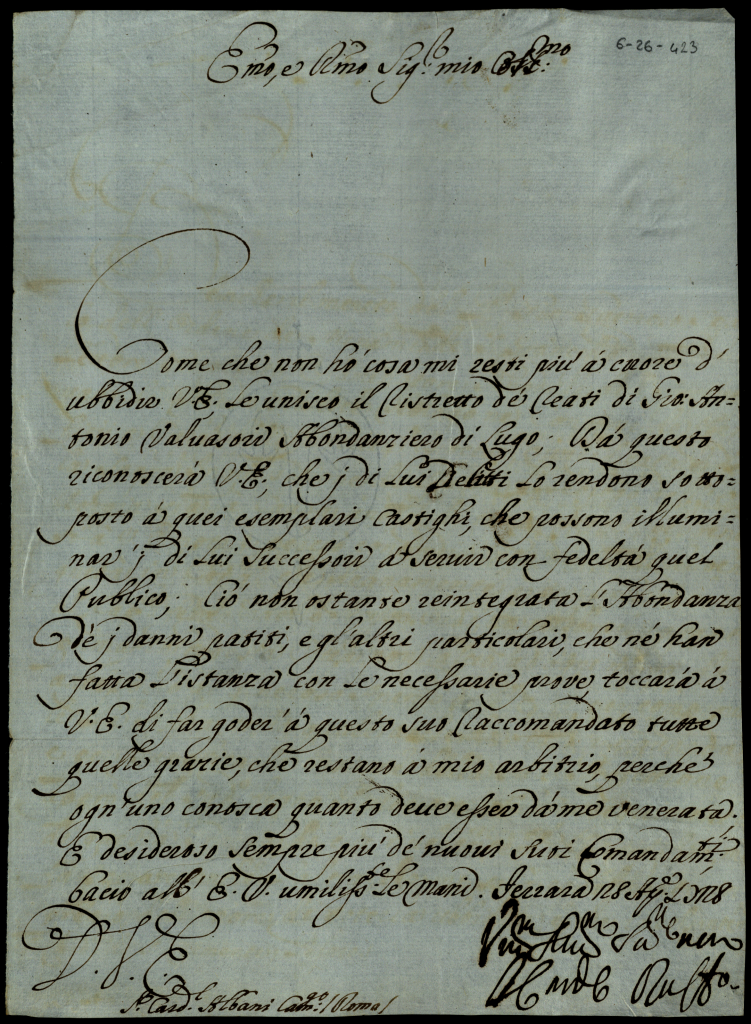 6-26-423
Emo, e Rmo Sig.r mio Oss.mo
Come che non hò cosa mi resti più à cuore d'
ubbidir V.E., Le unisco il Ristretto de Reati di Gio: An=
tonio Valuasori Abondanziero di Lugo; Dà questo
riconoscerà V.E., che j di Lui Delitti Lo rendono sotto=
posto à quei esemplari Castighi, che possono illumi=
nar' j di Lui Successori à seruir con fedeltà quel
Publico; Ciò non ostante reintegrata L'Abondanza
dè j danni patiti, e gl'altri particolari, che nè han
fatta L'istanza con Le necessarie prove, toccarà à
V.E. di far goder' à questo suo Raccomandato tutte
quelle grazie, che restano à mio arbitrio, perche'
ogn'uno conosca quanto deue esser dáme venerata.
E desideroso sempre più dé nuoui suoi Comandam.ti
bacio all' E.V. umiliss.e Le mani. Ferrara 28 Ap.le 1728
D. V. E.
Um.mo
Ruffo
S.r Card.l Albani Cam.go (Roma)